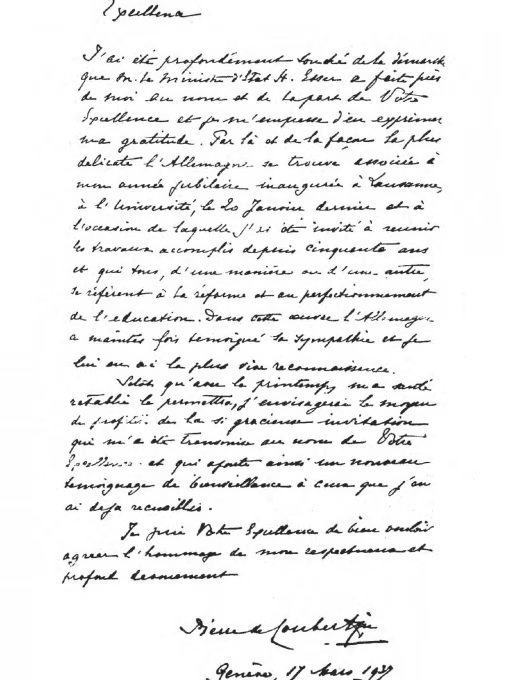 Excellence
J'ai été profondément touché de la démarche
que M. le Ministre d'Etat H. Esser a faite près
de moi au nom et de la part de Votre
Excellence et je m'empresse d'en exprimer
ma gratitude. Par là et de la façon la plus
délicate l'Allemagne se trouve associée à
mon année jubilaire inaugurée à Lausanne,
à l'Université, le 20 Janvier dernier et à
l'occasion de laquelle j'ai été invité à réunir
les travaux accomplis depuis cinquante ans
et qui tous, d'une manière ou d'une autre,
se réfèrent à la réforme et au perfectionnement
de l'education. Dans cette œuvre l'Allemagne
a maintes fois temoigné sa sympathie et je
lui en ai la plus vive reconnaissance.
Sitôt qu'avec le printemps, ma santé
retablie le permettra, j'envisagerai le moyen
de profiter de la si gracieuse invitation
qui m'a été transmise au nom de Votre
Excellence et qui ajoute ainsi un nouveau
temoignage de bienveillance à ceux que j'en
ai deja recueillis.
Je prie Votre Excellence de bien vouloir
agreer l'hommage de mon respectueux et
profond devouement
Pierre de Coubertin
Genève, 17 Mars 1937